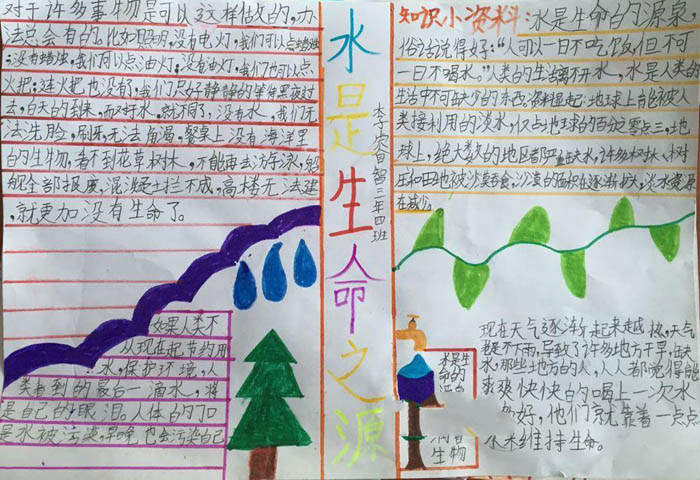 对于许多事物是可以这样做的,办
法总会有的。比如照明,没有电灯,我们可以点蜡烛
;没有蜡烛,我们可以点油灯;没有油灯,我们也可以点
火把;连火把也没有,我们只好静静的等待黑夜过
去,白天的到来。而对于水,就不同了,没有水,我们无
法洗脸,刷牙,无法解渴,餐桌上没有海洋里
的生物,看不到花草树木,不能再去游泳,船
舰全部报废,混泥土拦不成,高楼无法建
,就更加没有生命了。
如果人类不
从现在起节约用
水,保护环境,人
类看到的最后一滴水,将
是自己的眼泪。人体的
是水被污染,早晚也会污染自己
水是生命之源
三年四班
知识小资料:水是生命的源泉
俗话说得好:“人可以一日不吃饭,但不可
一日不喝水。”人类的生活离不开水,水是人类的
生活中不可缺少的东西。资料显起:地球上能被人
类接利用的淡水,仅占地球的百分之零点三,地
球上,绝大数的地区都严重缺水,许多树木、村
庄和田也被沙漠吞食,沙漠的面积在逐渐扩大,淡水资源
在减少。
现在天气逐渐起来越热,天气
是不下雨,导致了许多地方干旱,缺
水,那些地方的人,人人都觉得能
爽爽快快的喝上一次水
好,他们就靠着一点点
水来维持生命。
水是生
命的源
生物